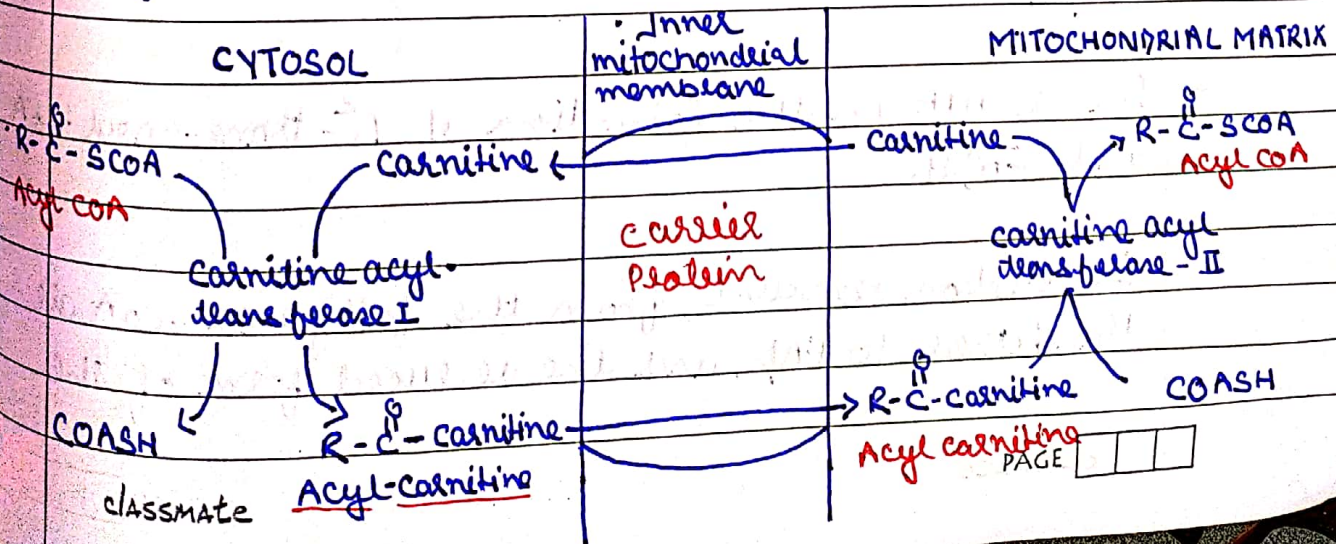 CYTOSOL
Inner
mitochondrial
membrane
MITOCHONDRIAL MATRIX
O
R-C-SCOA
Acyl COA
carnitine
carnitine acyl
transferase I
COASH
O
R-C-carnitine
Acyl-carnitine
carrier
Protein
carnitine
O
R-C-SCOA
Acyl COA
carnitine acyl
transferase-II
O
R-C-carnitine
Acyl carnitine
COASH
PAGE
classmate